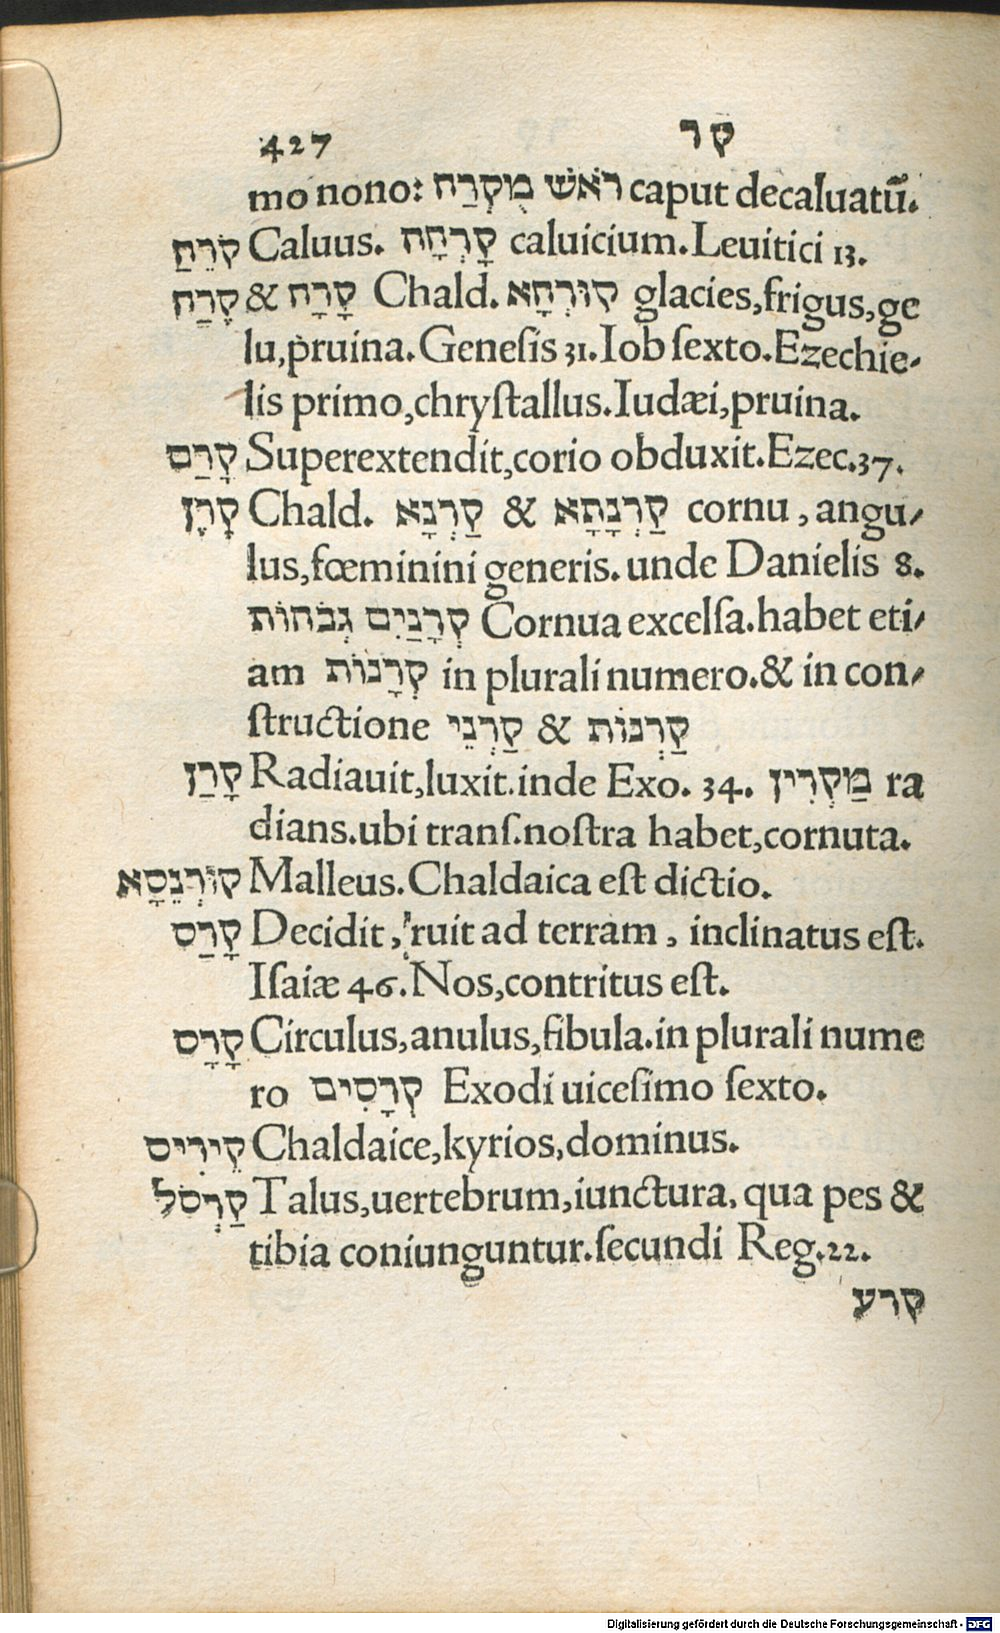 427 קר
mo nono: רֹאשׁ מֻקְרַח caput decaluatũ.
קֹרֵחַ Caluus. קָרְחָה caluicium. Leuitici 13.
קֶרַח & קָרָח Chald. קוּרְחָא glacies, frigus, ge
lu, pruina. Genesis 31. Iob sexto. Ezechie-
lis primo, chrystallus. Iudæi, pruina.
קָרַם Superextendit, corio obduxit. Ezec. 37.
קֶרֶן Chald. קַרְנָא & קַרְנָתָא cornu, angu-
lus, fœminini generis. unde Danielis 8.
קְרָנַיִם גְּבֹהוֹת Cornua excelsa. habet eti-
am קְרָנוֹת in plurali numero. & in con-
structione קַרְנֵי & קַרְנוֹת
קָרַן Radiauit, luxit. inde Exo. 34. מַקְרִין ra
dians. ubi transf. nostra habet, cornuta.
קוּרְנֵסָא Malleus. Chaldaica est dictio.
קָרַס Decidit, ruit ad terram, inclinatus est.
Isaiæ 46. Nos, contritus est.
קָרָס Circulus, anulus, fibula. in plurali nume
ro קְרָסִים Exodi uicesimo sexto.
קֵירִיס Chaldaice, kyrios, dominus.
קַרְסֹל Talus, uertebrum, iunctura, qua pes &
tibia coniunguntur. secundi Reg. 22.
קרע
Digitalisierung gefördert durch die Deutsche Forschungsgemeinschaft - DFG